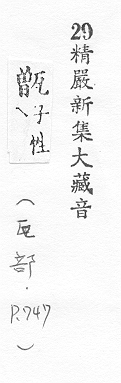 29精嚴新集大藏音
甑子性
(瓦部.P.747)